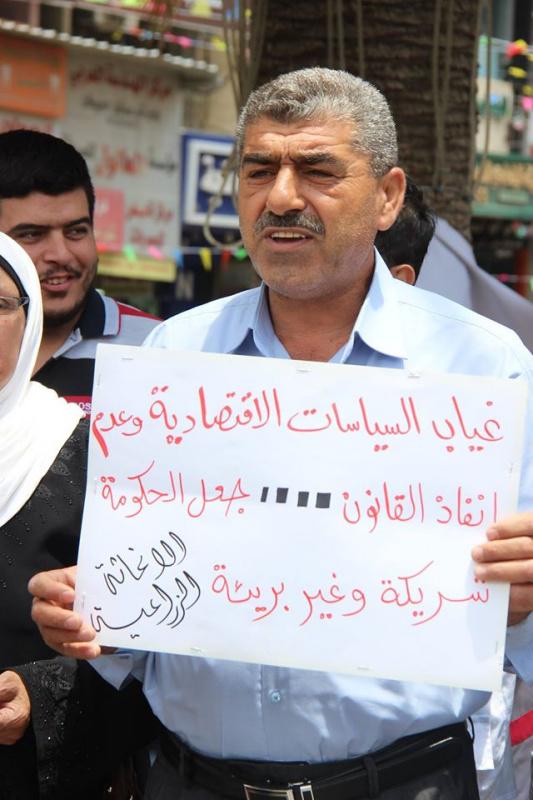 غياب السياسات الاقتصادية وعدم
انفاذ القانون ..... جعل الحكومة
شريكة وغير بريئة
الاغاثة
الزراعية